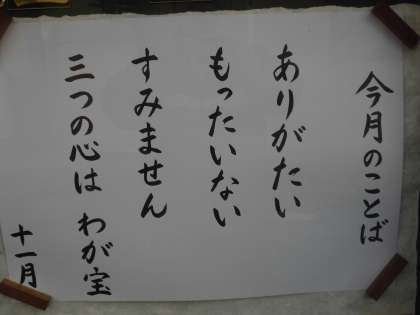 今月のことば
ありがたい
もったいない
すみません
三つの心は わが宝
十一月